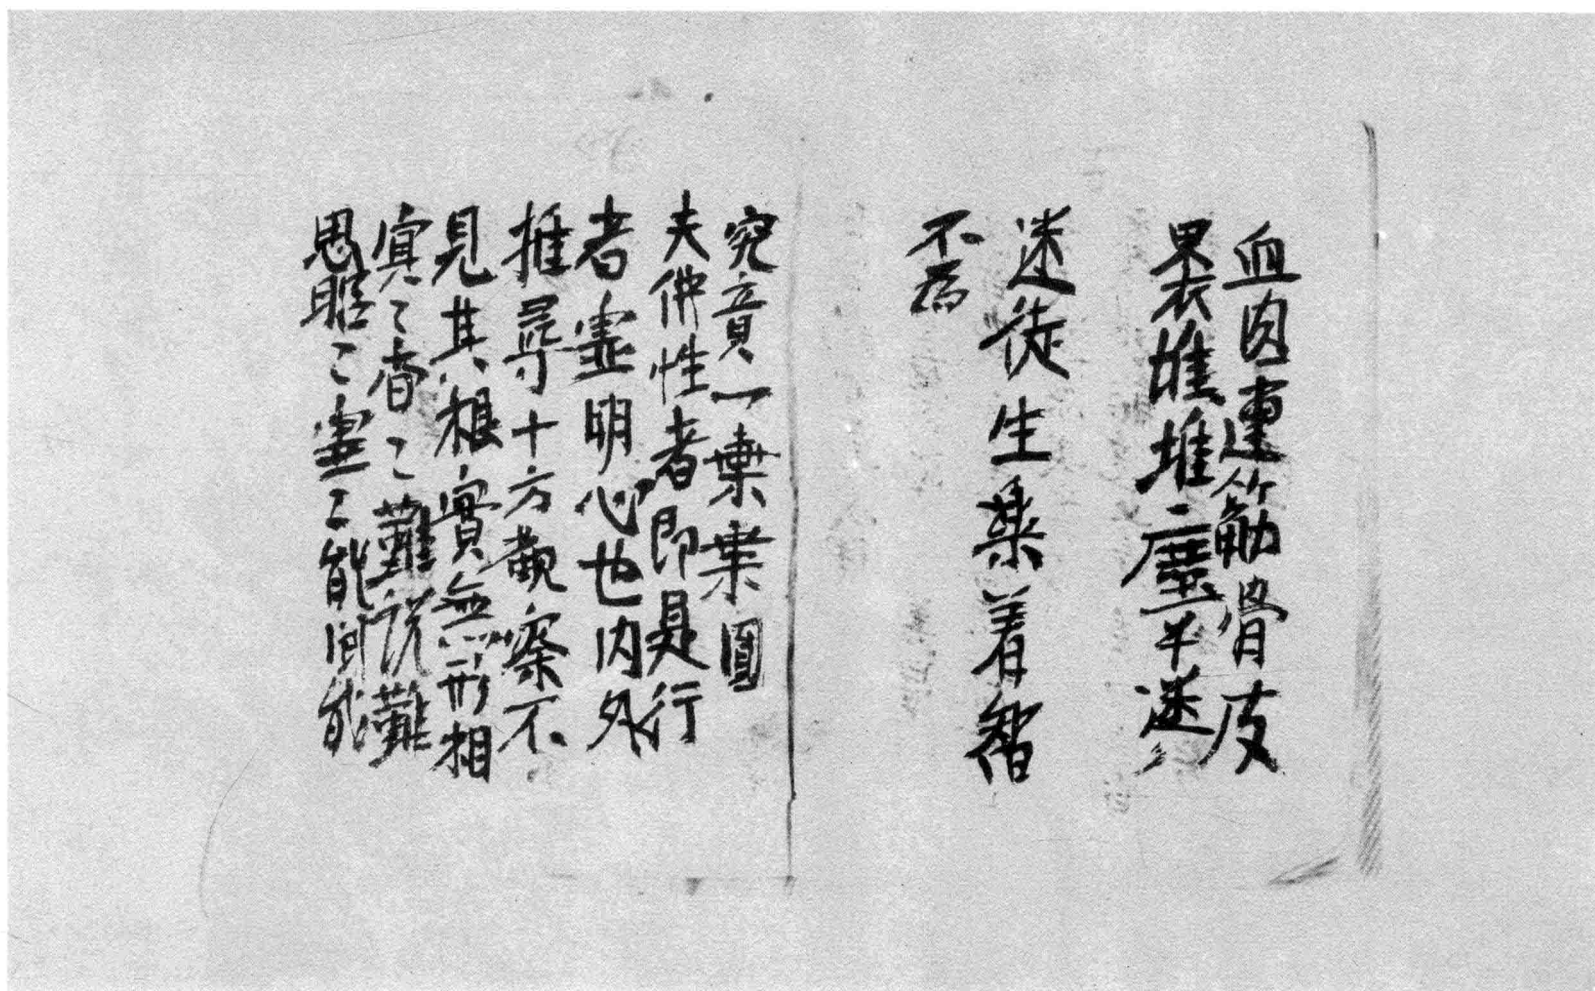 血肉連筋骨皮
裹堆堆塵羊迷
迷徒生樂着智
不為
究竟一乘圓
夫佛性者即是行
者靈明心也内外
推尋十方觀察不
見其根實無形相
冥〻杳〻難説難
思昭〻靈〻能間能